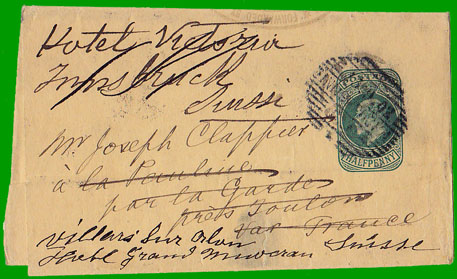 Hotel Victoria
Innsbruck
Mr Joseph Clappier
à la Pauline
par la Garde
près Toulon
Var France
Villars Sur Ollon
Suisse
Hotel Grand
HALFPENNY